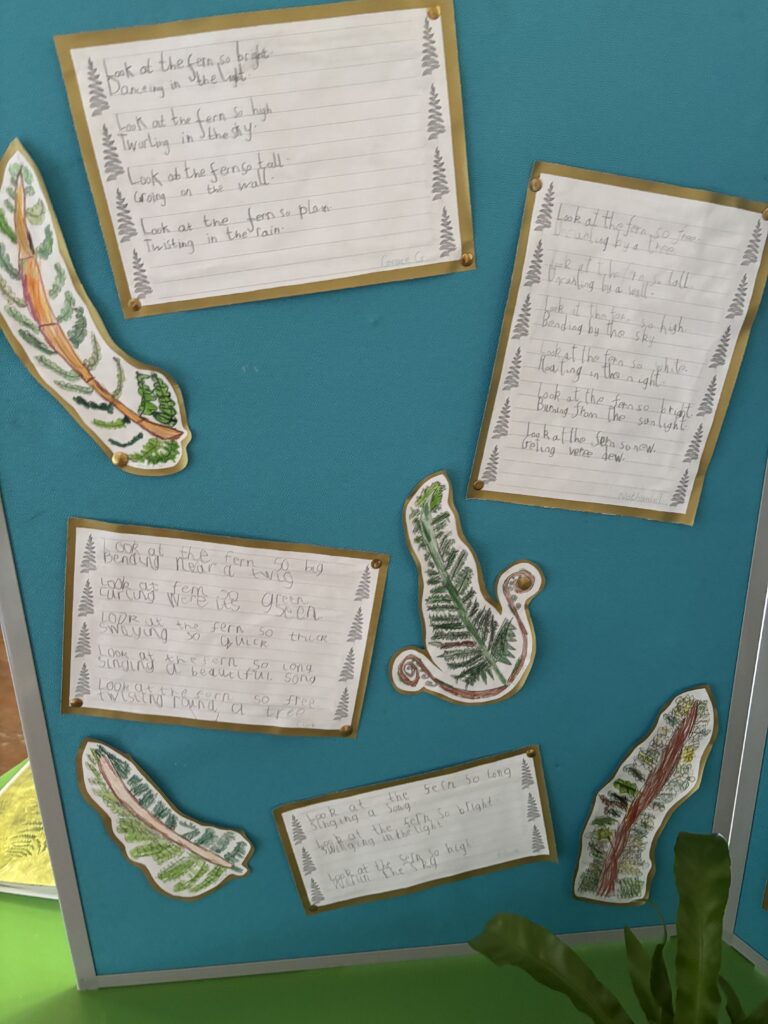 Look at the fern so bright.
Dancing in the light
Look at the fern so high
Twarling in the sky.
Look at the fern so tall.
Groing on the wall.
Look at the fern so plain.
Twisting in the rain.
Look at the fern so free.
by a tree.
Look at the fern so tall
by a wall.
Look at the fern so high.
Bending by the sky
Look at the fern so white.
Floating in the night.
Look at the fern so bright
Burning from the sunlight.
Look at the fern so new.
feling veree dew.
Nathaniel
Look at the fern so big
bending near a twig
Look at fern so green
curling were its green
Look at the fern so thick
swaying so quick
Look at the fern so long
singing a beautiful song
Look at the fern so free
twisting round a tree
Look at the fern so long
singing a song
Look at the fern so bright
in the light
Look at the fern so high
the sky